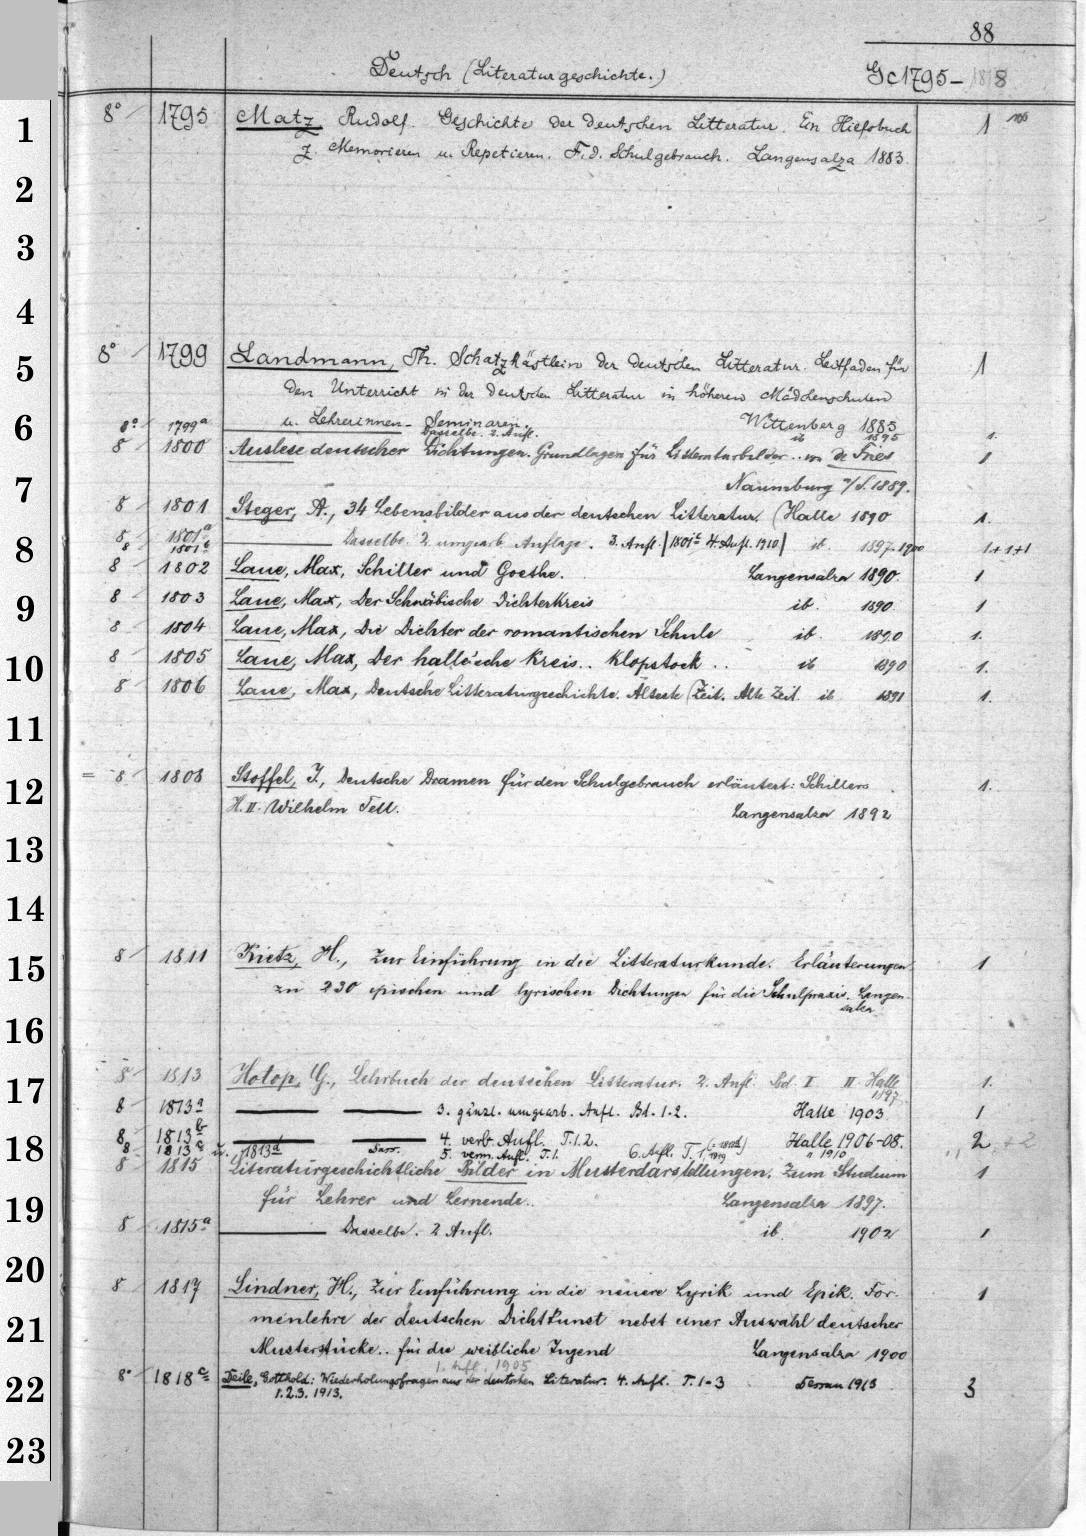 88
Deutsch (Literaturgeschichte.) Gc 1795–1818
1 8° 1795 Matz, Rudolf. Geschichte der deutschen Litteratur. Ein Hilfsbuch 1
z. Memorieren u. Repetieren. F. d. Schulgebrauch. Langensalza 1883.
2
3
4
5 8° 1799 Landmann, Th. Schatzkästlein der deutschen Litteratur. Leitfaden für 1
den Unterricht in der deutschen Litteratur in höheren Mädchenschulen
u. Lehrerinnen-Seminarien. Wittenberg 1883
6 8° 1799a Dasselbe. 2. Aufl. ib 1895 1.
8 1800 Auslese deutscher Dichtungen. Grundlagen für Litteraturbilder .. von de Fries 1
7 Naumburg a/S. 1889.
8 1801 Steger, A., 34 Lebensbilder aus der deutschen Litteratur. (Halle 1890 1.
8 8 1801a Dasselbe 2 umgearb. Auflage. 3. Aufl. | 1801c 4. Aufl. 1910 | ib. 1897. 1900 1+1+1
8 1801b
8 1802 Laue, Max, Schiller und Goethe. Langensalza 1890. 1
9 8 1803 Laue, Max, Der Schwäbische Dichterkreis ib. 1890. 1
8 1804 Laue, Max, Die Dichter der romantischen Schule ib. 1890 1.
10 8 1805 Laue, Max, Der hallesche Kreis.. Klopstock .. ib 1890 1.
8 1806 Laue, Max, Deutsche Litteraturgeschichte. Älteste Zeit. Alte Zeit. ib 1891 1.
11
12 = 8 1808 Stoffel, J., Deutsche Dramen für den Schulgebrauch erläutert: Schillers 1.
H. II. Wilhelm Tell. Langensalza 1892
13
14
15 8 1811 Krietz, H., Zur Einführung in die Litteraturkunde. Erläuterungen 1
zu 230 epischen und lyrischen Dichtungen für die Schulpraxis. Langen-
salza
16
17 8 1813 Hotop, G., Lehrbuch der deutschen Litteratur. 2. Aufl. Bd. I II Halle 1.
1897.
8 1813a 3. gänzl. umgearb. Aufl. Bd. 1-2. Halle 1903 1
18 8 1813b 4. verb. Aufl. T. 1. 2. Halle 1906-08. 2 + 2
8 1813c u. 1813d 5. verm. Aufl. T. 1. 6. Aufl. T. 1, 1919 (= 1813d) " 1910
8 1815 Literaturgeschichtliche Bilder in Musterdarstellungen. Zum Studium 1
19 für Lehrer und Lernende.. Langensalza 1897.
8 1815a Dasselbe. 2 Aufl. ib. 1902 1
20 8 1817 Lindner, H., Zur Einführung in die neuere Lyrik und Epik. For- 1
21 menlehre der deutschen Dichtkunst nebst einer Auswahl deutscher
Musterstücke.. für die weibliche Jugend Langensalza 1900
1. Aufl. 1905
22 8° 1818c Deile, Gotthold: Wiederholungsfragen aus der deutschen Literatur. 4. Aufl. T. 1-3 Dessau 1913 3
1. 2. 3. 1913.
23